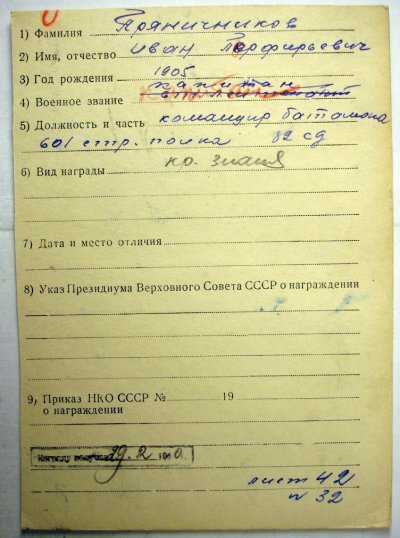 1) Фамилия Пряничников
2) Имя, отчество Иван Порфирьевич
3) Год рождения 1905
4) Военное звание капитан
5) Должность и часть командир батальона
601 стр. полка 82 сд
6) Вид награды кр. знамя
7) Дата и место отличия
8) Указ Президиума Верховного Совета СССР о награждении
9) Приказ НКО СССР № 19
о награждении
29.2
лист 42
п 32